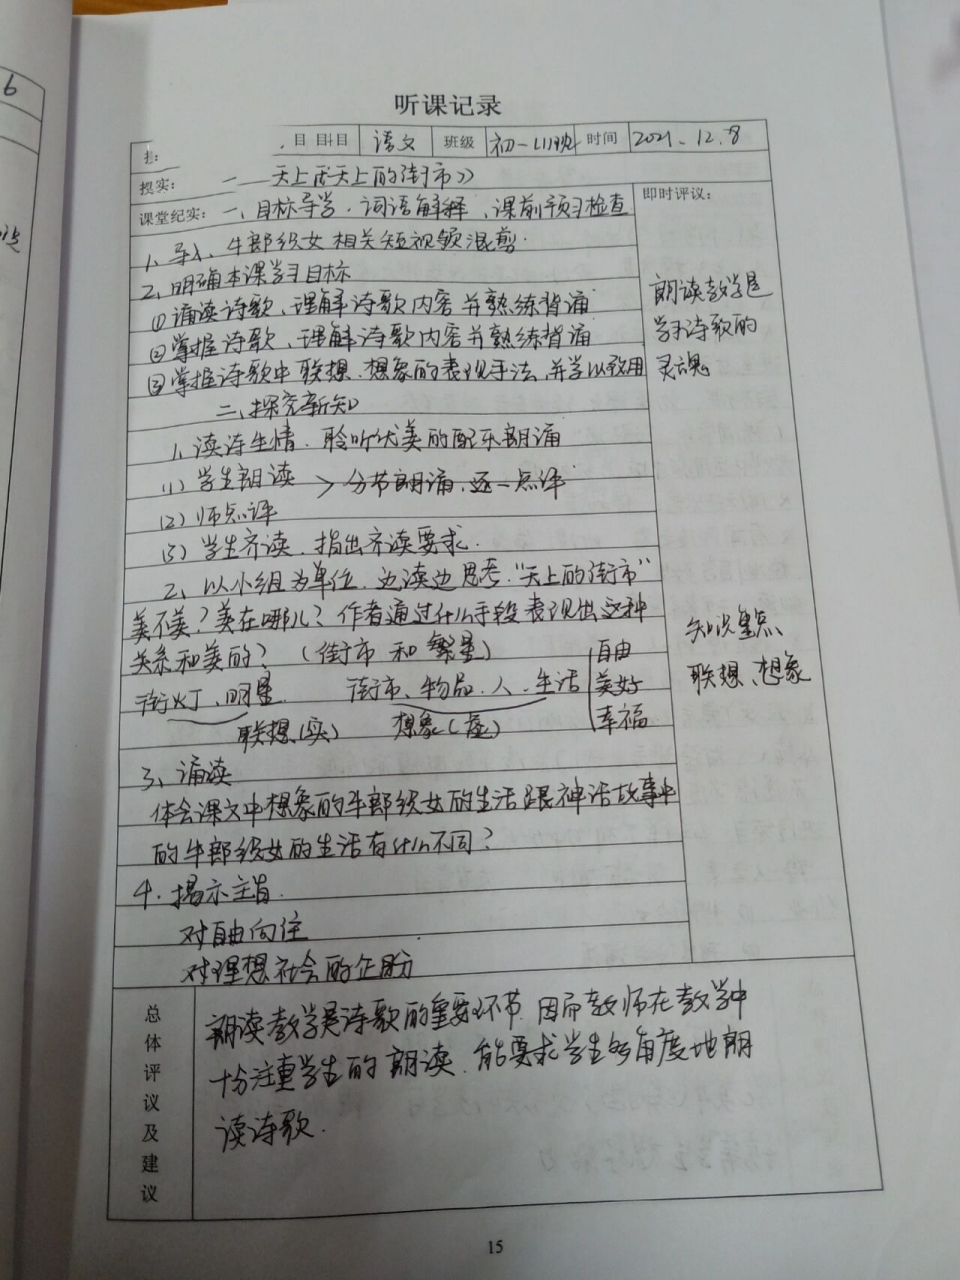 6
听课记录
目 科目 语文 班级 初一 时间 2021.12.8
天上的街市》
课堂纪实: 一、目标导学、词语解释、课前预习检查 即时评议:
1、导入、牛郎织女相关短视频混剪.
2、明确本课学习目标
①诵读诗歌、理解诗歌内容并熟练背诵
②掌握诗歌、理解诗歌内容并熟练背诵
③掌握诗歌中联想、想象的表现手法,并学以致用
朗读教学是
学习诗歌的
灵魂
二、探究新知
1、读诗生情、聆听优美的配乐朗诵
(1)学生朗读 > 分节朗诵,逐一点评
(2)师点评
(3)学生齐读、指出齐读要求.
2、以小组为单位,边读边思考,"天上的街市"
美不美?美在哪儿?作者通过什么手段表现出这种
关系和美的?(街市和繁星)
街灯、明星 街市、物品、人、生活 自由
美好
幸福
联想(实) 想象(虚)
知识重点、
联想、想象
3、诵读
体会课文中想象的牛郎织女的生活跟神话故事中
的牛郎织女的生活有什么不同?
4.揭示主旨.
对自由向往
对理想社会的企盼
总体评议及建议
朗读教学是诗歌的重要环节,因而教师在教学中
十分注重学生的朗读,能要求学生多角度地朗
读诗歌.
15